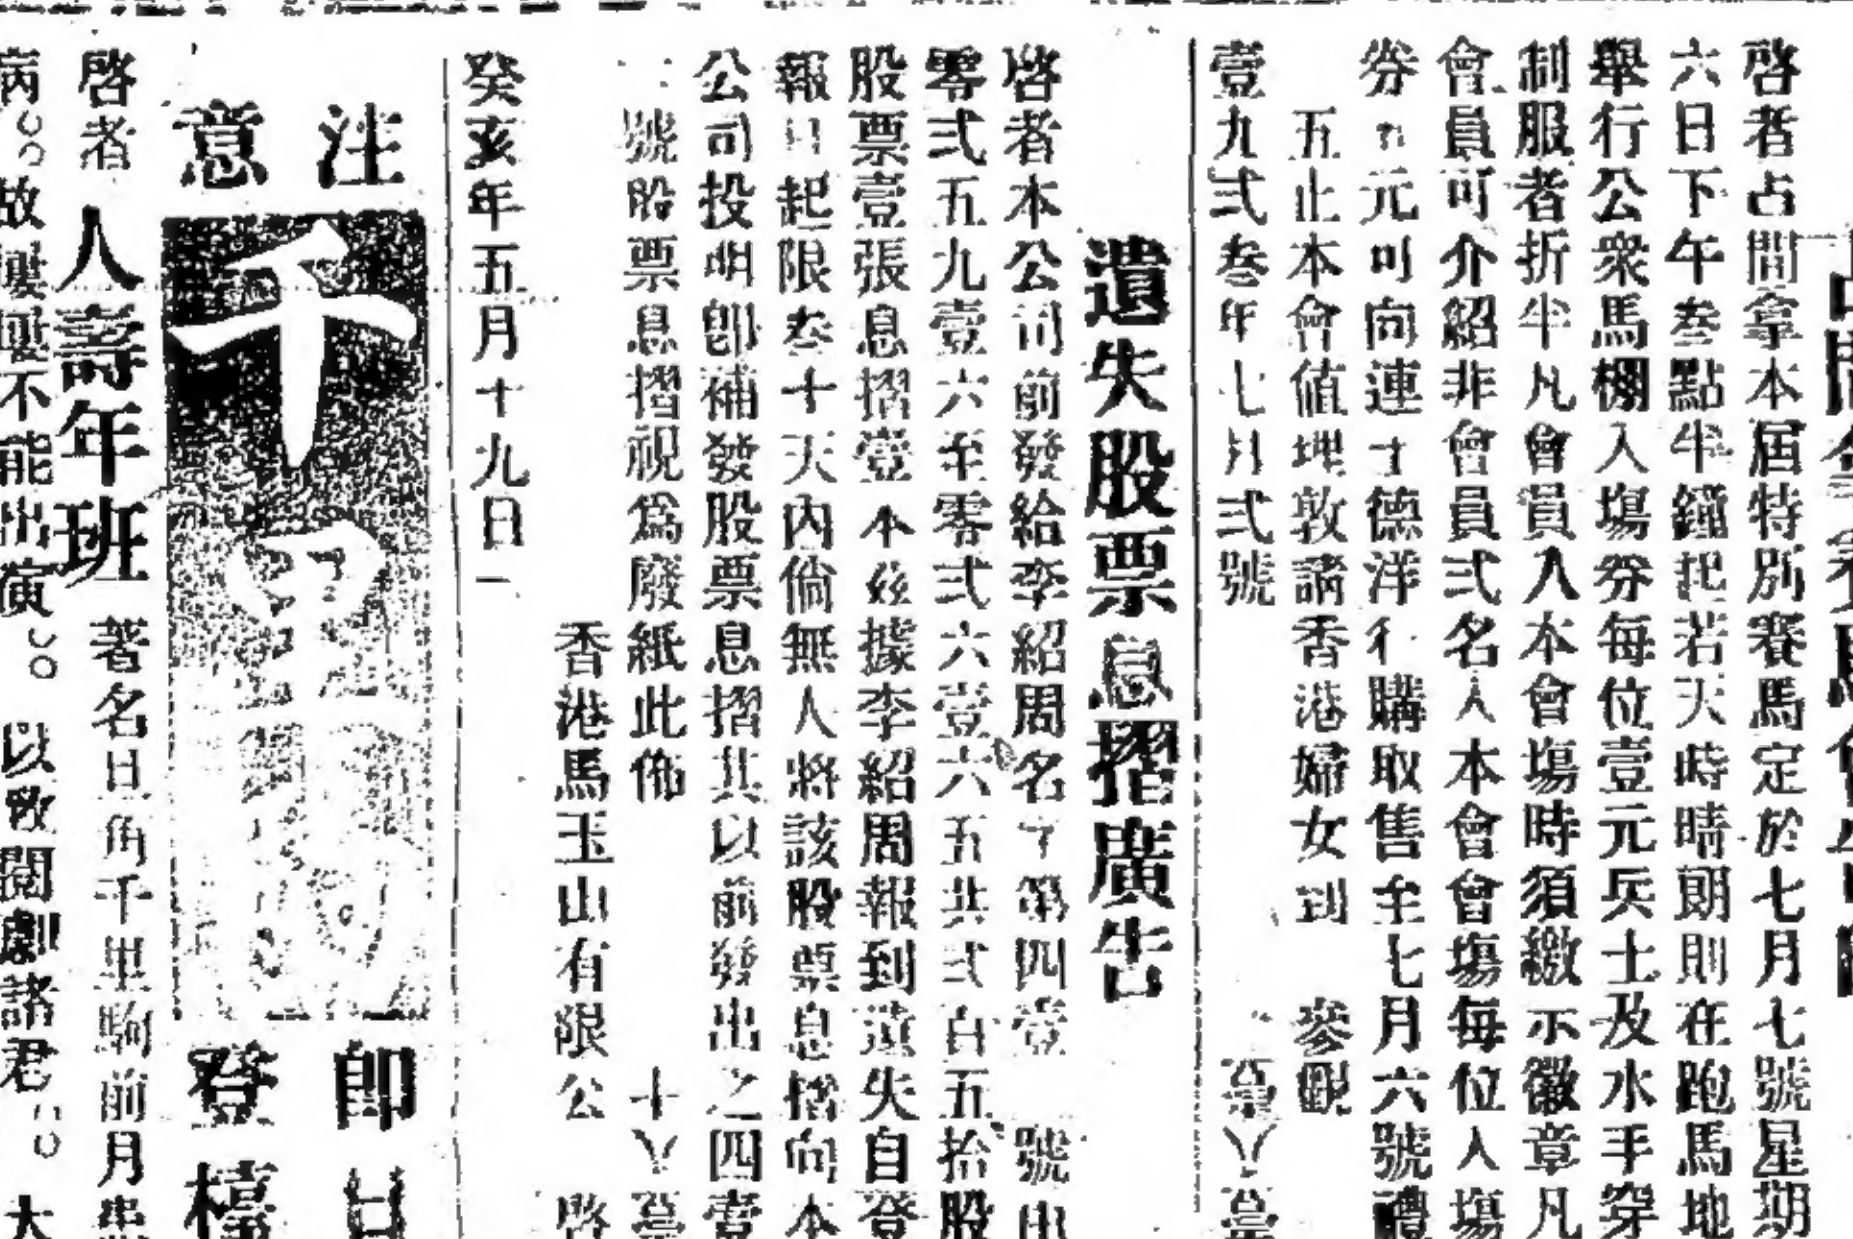 啓者占間拿本屆特別賽馬定於七月七號星期
六日下午叁點半鐘起若天時晴朗則在跑馬地
舉行公衆馬棚入塲券每位壹元兵士及水手穿
制服者折半凡會員入本會塲時須繳示徽章凡
會員可介紹非會員弍名入本會會塲每位入塲
券 元可向連 德洋行購取售至七月六號禮
五止本會值理敦請香港婦女到 參觀
壹九弍叁年七月弍號
遺失股票息摺廣告
啓者本公司前發給李紹周名下第四壹 號由
零弍五九壹六至零弍六壹六五共弍百五拾股
股票壹張息摺壹本茲據李紹周報到遺失自登
報日起限叁十天內倘無人將該股票息摺向本
公司投明卽補發股票息摺其以前發出之四壹
號股票息摺視爲廢紙此佈
香港馬玉山有限公 啓
癸亥年五月十九日
注意
千里駒
卽日
登檯
啓者人壽年班著名旦角千里駒前月患
病。故屢屢不能出演。以致閱劇諸君。大